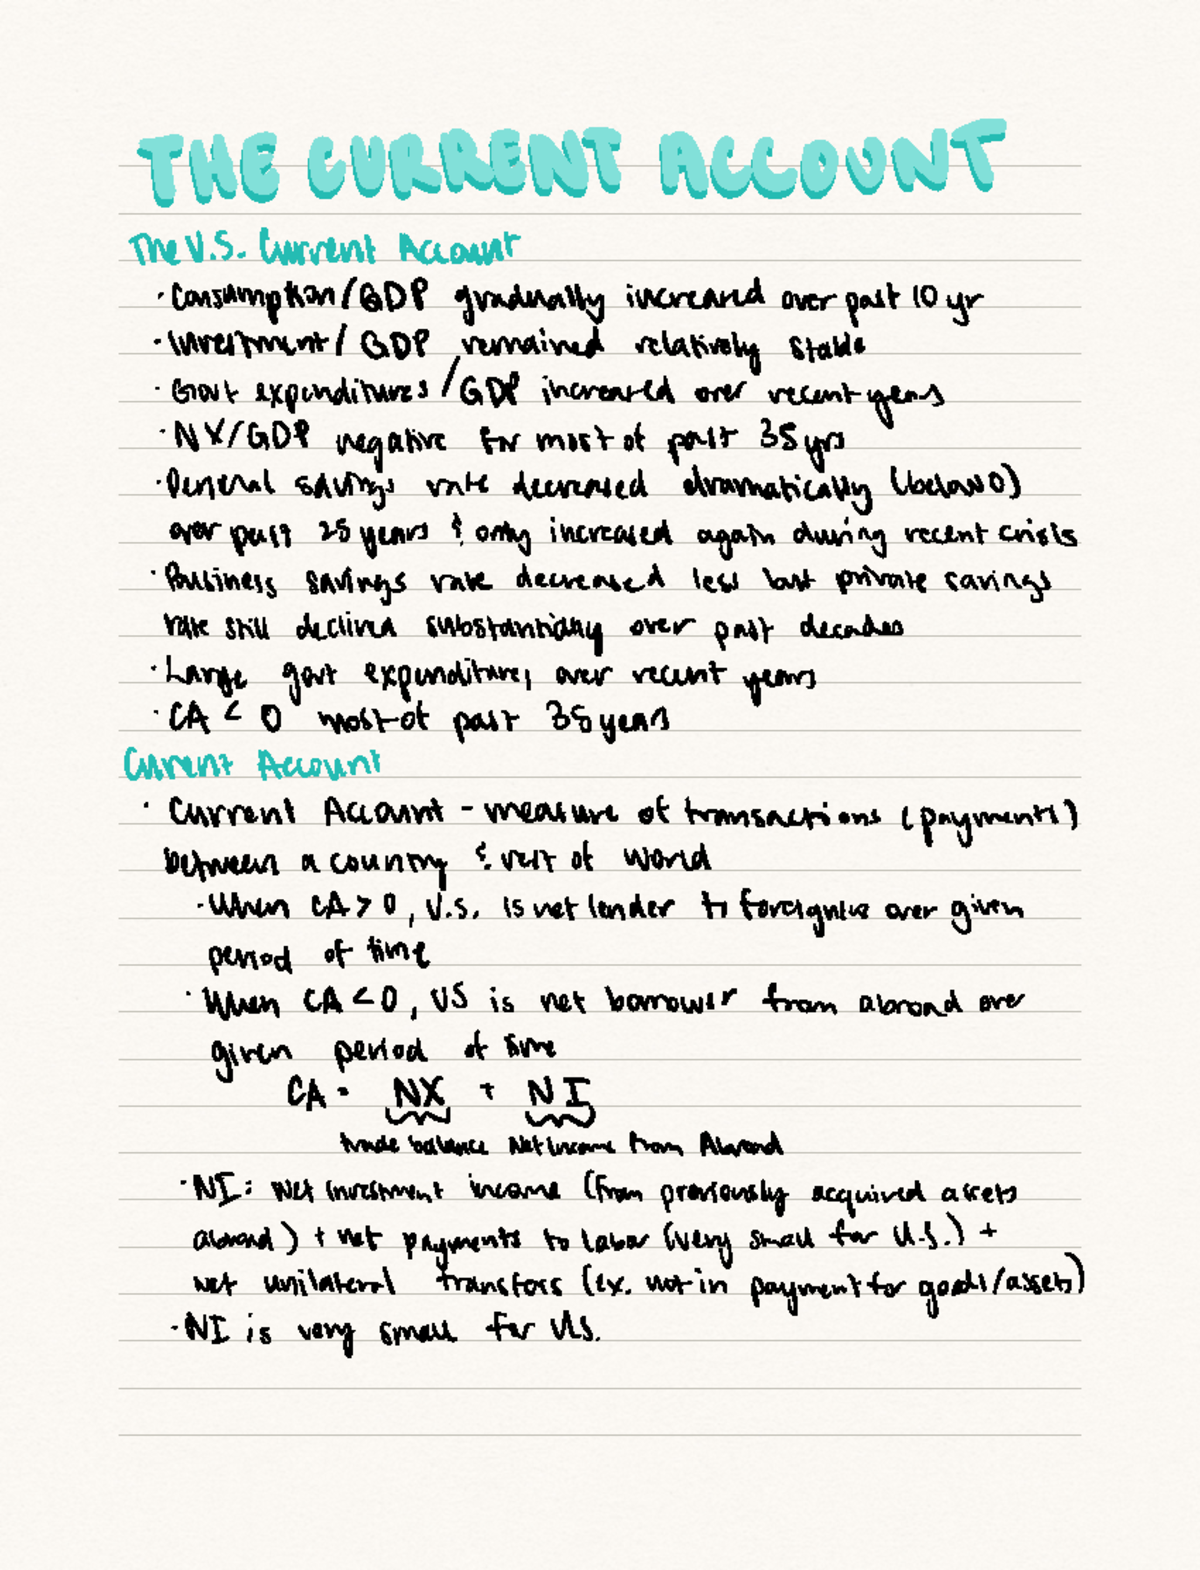 THE CURRENT ACCOUNT
The U.S. Current Account
· Consumption/GDP gradually increased over past 10 yr
· Investment/ GDP remained relatively stable
· Govt expenditures/GDP increased over recent years
· NX/GDP negative for most of past 35 yrs
· Personal savings rate decreased dramatically (below 0)
over past 25 years & only increased again during recent crisis
· Business savings rate decreased less but private savings
rate still declined substantially over past decades
· Large govt expenditures over recent years
· CA < 0 most of past 35 years
Current Account
· Current Account - measure of transactions (payments)
between a country & rest of world
· When CA > 0, U.S. is net lender to foreigners over given
period of time
· When CA < 0, US is net borrower from abroad over
given period of time
CA = NX + NI
trade balance Net Income from Abroad
· NI: net investment income (from previously acquired assets
abroad) + net payments to labor (very small for U.S.) +
net unilateral transfers (ex. not in payment for goods/assets)
· NI is very small for U.S.